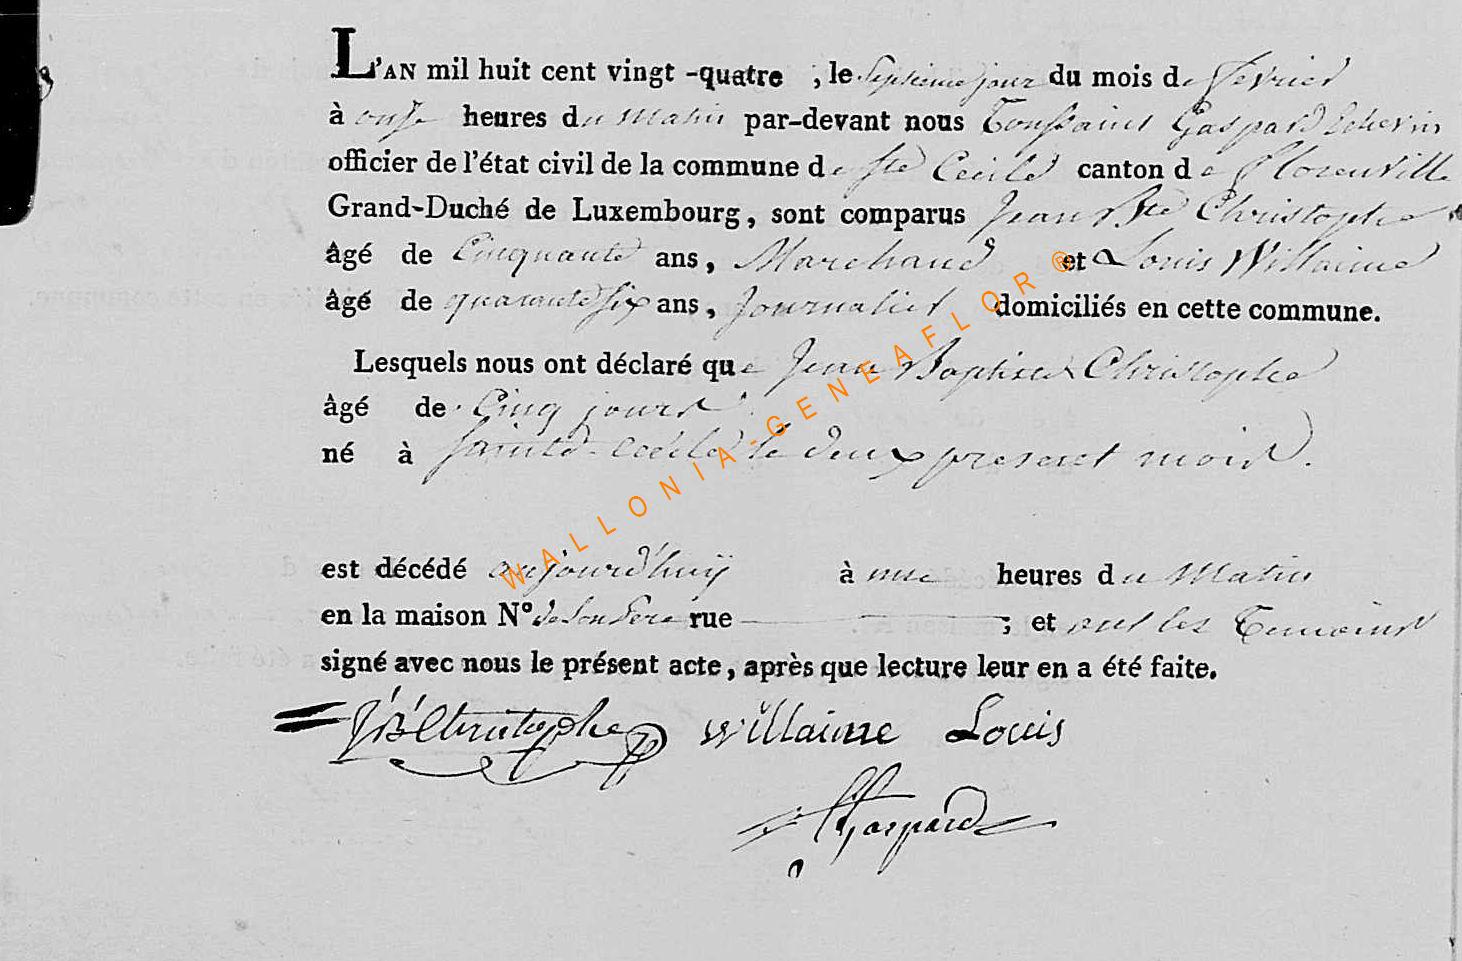 L'AN mil huit cent vingt -quatre , le Septieme jour du mois de fevrier
à onse heures du Matin par-devant nous Toussaint Gaspard Echevin
officier de l'état civil de la commune de ste Cecile canton de florenville
Grand-Duché de Luxembourg, sont comparus Jean Bte Christophe
âgé de Cinquante ans, Marchand et Louis Willaime
âgé de quarante six ans, Journalier domiciliés en cette commune.
Lesquels nous ont déclaré que Jean Baptiste Christophe
âgé de Cinq jours
né à Sainte-Cécile le deux present mois.
est décédé aujourd'huÿ à une heures du Matin
en la maison N° de Son Pere rue ; et ont les Temoins
signé avec nous le présent acte, après que lecture leur en a été faite.
JB Christophe Willaime Louis
Gaspard
WALLONIA-GENEAFLOR®